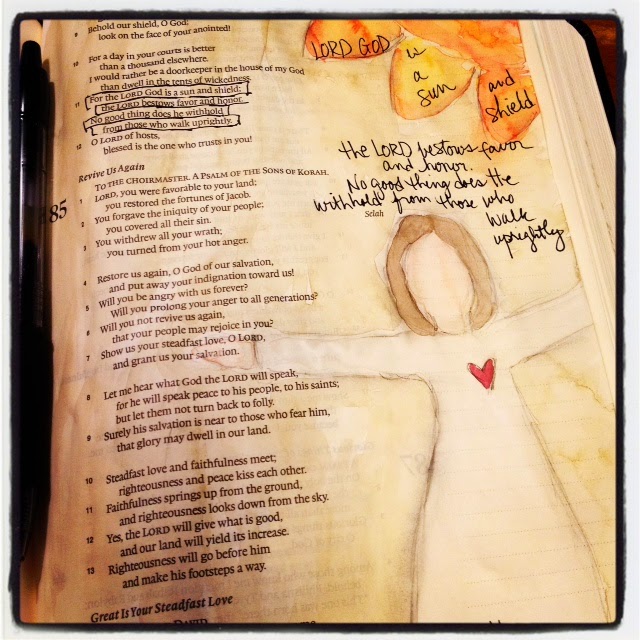 9 Behold our shield, O God;
look on the face of your anointed!
10 For a day in your courts is better
than a thousand elsewhere.
I would rather be a doorkeeper in the house of my God
than dwell in the tents of wickedness.
11 For the LORD God is a sun and shield;
the LORD bestows favor and honor.
No good thing does he withhold
from those who walk uprightly.
12 O LORD of hosts,
blessed is the one who trusts in you!
Revive Us Again
TO THE CHOIRMASTER. A PSALM OF THE SONS OF KORAH.
85
1 LORD, you were favorable to your land;
you restored the fortunes of Jacob.
2 You forgave the iniquity of your people;
you covered all their sin.
Selah
3 You withdrew all your wrath;
you turned from your hot anger.
4 Restore us again, O God of our salvation,
and put away your indignation toward us!
5 Will you be angry with us forever?
Will you prolong your anger to all generations?
6 Will you not revive us again,
that your people may rejoice in you?
7 Show us your steadfast love, O LORD,
and grant us your salvation.
8 Let me hear what God the LORD will speak,
for he will speak peace to his people, to his saints;
but let them not turn back to folly.
9 Surely his salvation is near to those who fear him,
that glory may dwell in our land.
10 Steadfast love and faithfulness meet;
righteousness and peace kiss each other.
11 Faithfulness springs up from the ground,
and righteousness looks down from the sky.
12 Yes, the LORD will give what is good,
and our land will yield its increase.
13 Righteousness will go before him
and make his footsteps a way.
Great Is Your Steadfast Love
DAVID
LORD GOD
is
a
sun
and
shield
the LORD bestows favor
and honor.
No good thing does He
withhold from those who
walk
uprightly